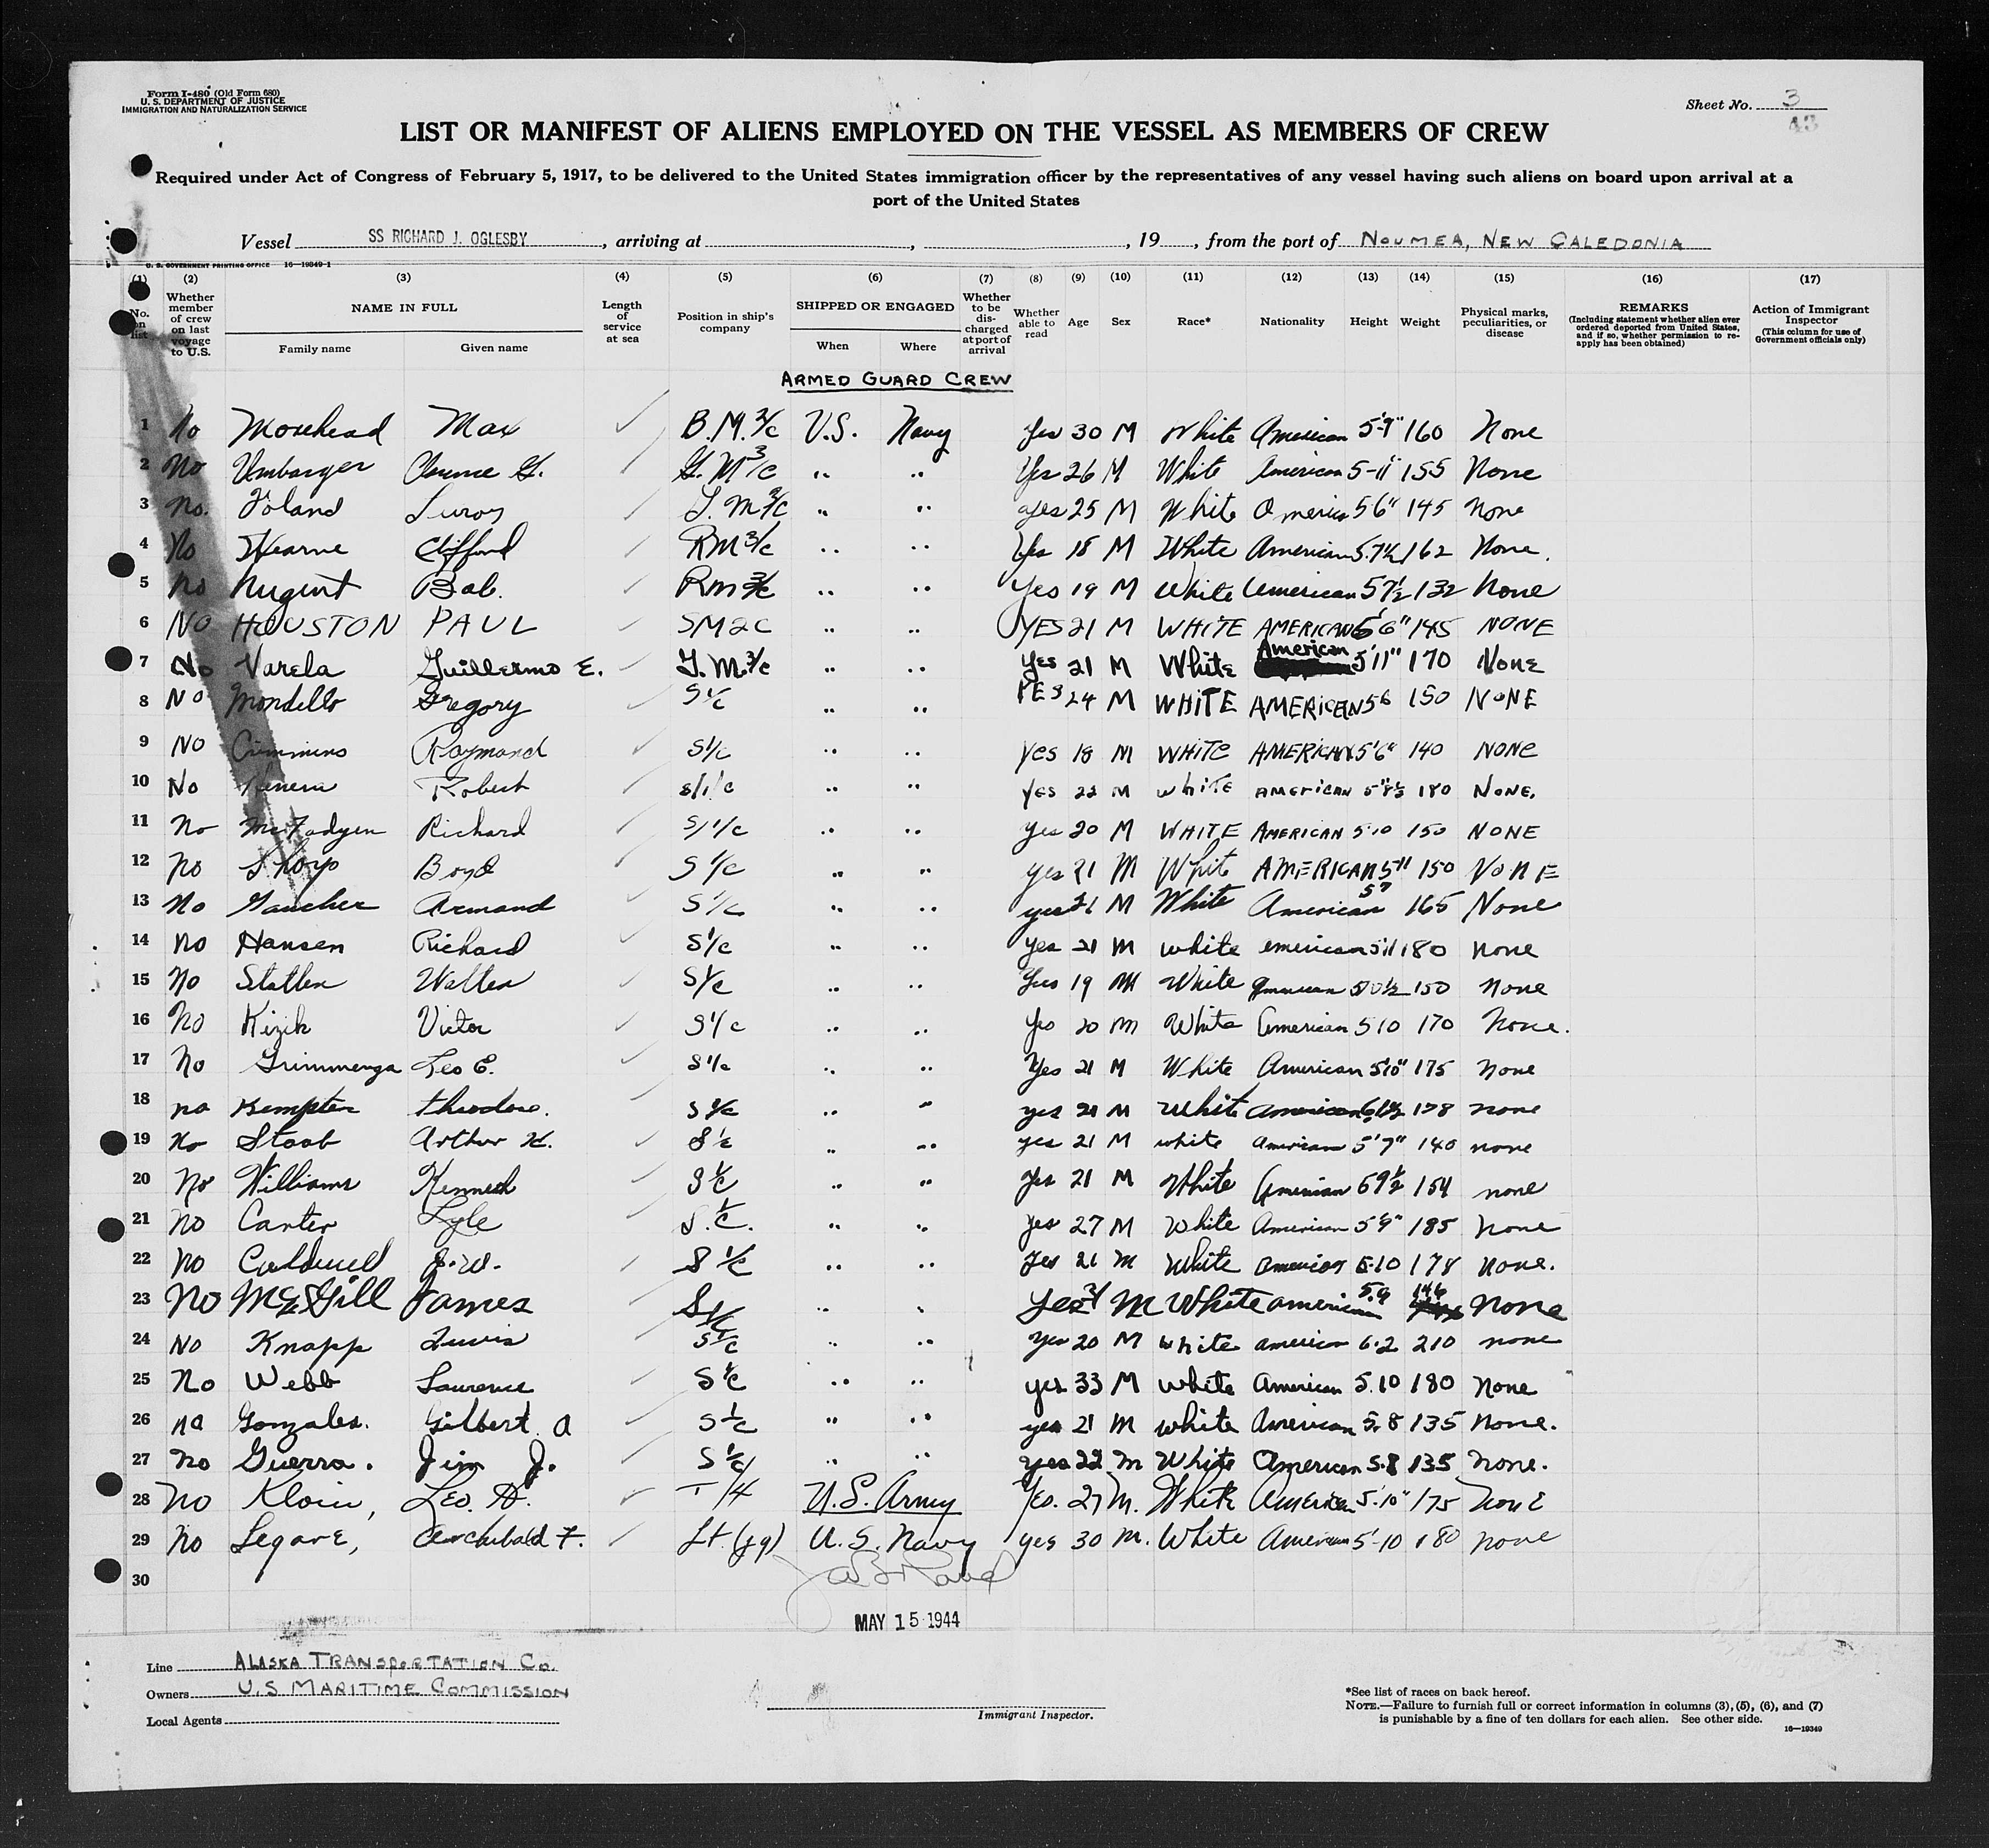 Form I-480 (Old Form 680)
U. S. DEPARTMENT OF JUSTICE
IMMIGRATION AND NATURALIZATION SERVICE
Sheet No. 3
43
LIST OR MANIFEST OF ALIENS EMPLOYED ON THE VESSEL AS MEMBERS OF CREW
Required under Act of Congress of February 5, 1917, to be delivered to the United States immigration officer by the representatives of any vessel having such aliens on board upon arrival at a
port of the United States
Vessel SS RICHARD J. OGLESBY, arriving at , , 19 , from the port of NOUMEA, NEW CALEDONIA
U. S. GOVERNMENT PRINTING OFFICE 16-19349-1
(1) (2) (3) (4) (5) (6) (7) (8) (9) (10) (11) (12) (13) (14) (15) (16) (17)
No. on list
Whether member of crew on last voyage to U.S.
NAME IN FULL
Family name Given name
Length of service at sea
Position in ship's company
SHIPPED OR ENGAGED
When Where
Whether to be discharged at port of arrival
Whether able to read
Age Sex Race* Nationality Height Weight
Physical marks, peculiarities, or disease
REMARKS
(Including statement whether alien ever ordered deported from United States, and if so, whether permission to reapply has been obtained)
Action of Immigrant Inspector
(This column for use of Government officials only)
ARMED GUARD CREW
1 No Morehead Max B.M. 2/c U.S. Navy Yes 30 M White American 5-9" 160 None
2 No Umbarger Clarence G. G.M 3/c " " Yes 26 M White American 5-11" 155 None
3 No. Toland Leroy " " Yes 25 M White America 5 6" 145 None
4 No Hearne Clifford RM 3/c " " Yes 18 M White American 5.7½ 162 None.
5 No Nugent Bob. Rm 3/c " " Yes 19 M White American 5 7½ 132 None
6 NO HOUSTON PAUL SM2C " " YES 21 M WHITE AMERICAN 5'6" 145 NONE
7 No Varela Guillermo E. G.M. 3/c " " Yes 21 M White American 5'11" 170 None
8 NO Mondello Gregory S 1/c " " YES 24 M WHITE AMERICAN 5 6 150 NONE
9 NO Cummins Raymond S1/c " " Yes 18 M WHITE AMERICAN 5'6" 140 NONE
10 No Robert S/1/c " " Yes 22 M White AMERICAN 5'8½ 180 NONE.
11 No McFadyen Richard S/1/c " " Yes 20 M WHITE AMERICAN 5'10 150 NONE
12 No Boyd S 1/c " " yes 21 M White AMERICAN 5'11 150 NONE
13 No Gaucher Armand S 1/c " " yes 21 M White American 5 7 165 None
14 No Hansen Richard S 1/c " " Yes 21 M white american 5'11 180 None
15 No Statler Walter S 1/c " " Yes 19 M White American 150 None
16 No Kizik Victor S 1/c " " Yes 20 M White American 5 10 170 None.
17 No Grimmenga Leo E. S 1/c " " Yes 21 M White American 5'10" 175 None
18 no Kempter theodore. S 1/c " " yes 21 M White American 178 none
19 No Staab Arthur H. S 1/c " " yes 21 M white American 5'7" 140 none
20 No Williams Kenneth S 1/c " " Yes 21 M White American 5 9½ 154 none
21 No Carter Lyle S. 1/c. " " Yes 27 M White American 5'9" 185 None
22 No Caldwell J.W. S 1/c " " Yes 21 M White American 5-10 178 None.
23 No McGill James S 1/c " " Yes 21 M White american 5.9 146 None
24 No Knapp Lewis S 1/c " " Yes 20 M white american 6.2 210 none
25 No Webb Laurence S 1/c " " yes 33 M White American 5.10 180 None
26 no Gonzales. Gilbert A S 1/c " " yes 21 M white American 5.8 135 None.
27 No Guerra. Jim J. S 1/c " " yes 22 M White American 5.8 135 None.
28 No Leo. H. T/4 U.S. Army Yes. 27 M. White American 5'-10" 175 None
29 No Legare, Archibald F. Lt. (jg) U.S. Navy yes 30 M. White American 5'-10 180 none
30
MAY 15 1944
Line ALASKA TRANSPORTATION CO.
Owners U.S MARITIME COMMISSION
Local Agents
Immigrant Inspector.
*See list of races on back hereof.
NOTE.—Failure to furnish full or correct information in columns (3), (5), (6), and (7)
is punishable by a fine of ten dollars for each alien. See other side.
16—19349